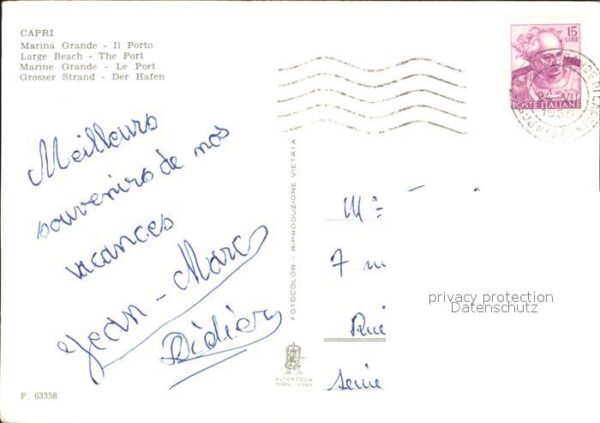 CAPRI
Marina Grande - Il Porto
Large Beach - The Port
Marine Grande - Le Port
Grosser Strand - Der Hafen
15
LIRE
POSTE ITALIANE
Meilleurs
souvenirs de nos
vacances
Jean-Marc
Didier
FOTOCOLOR - RIPRODUZIONE VIETATA
7
privacy protection
Datenschutz
Rue
Seine
ALTEROCCA
TERNI
F. 63358